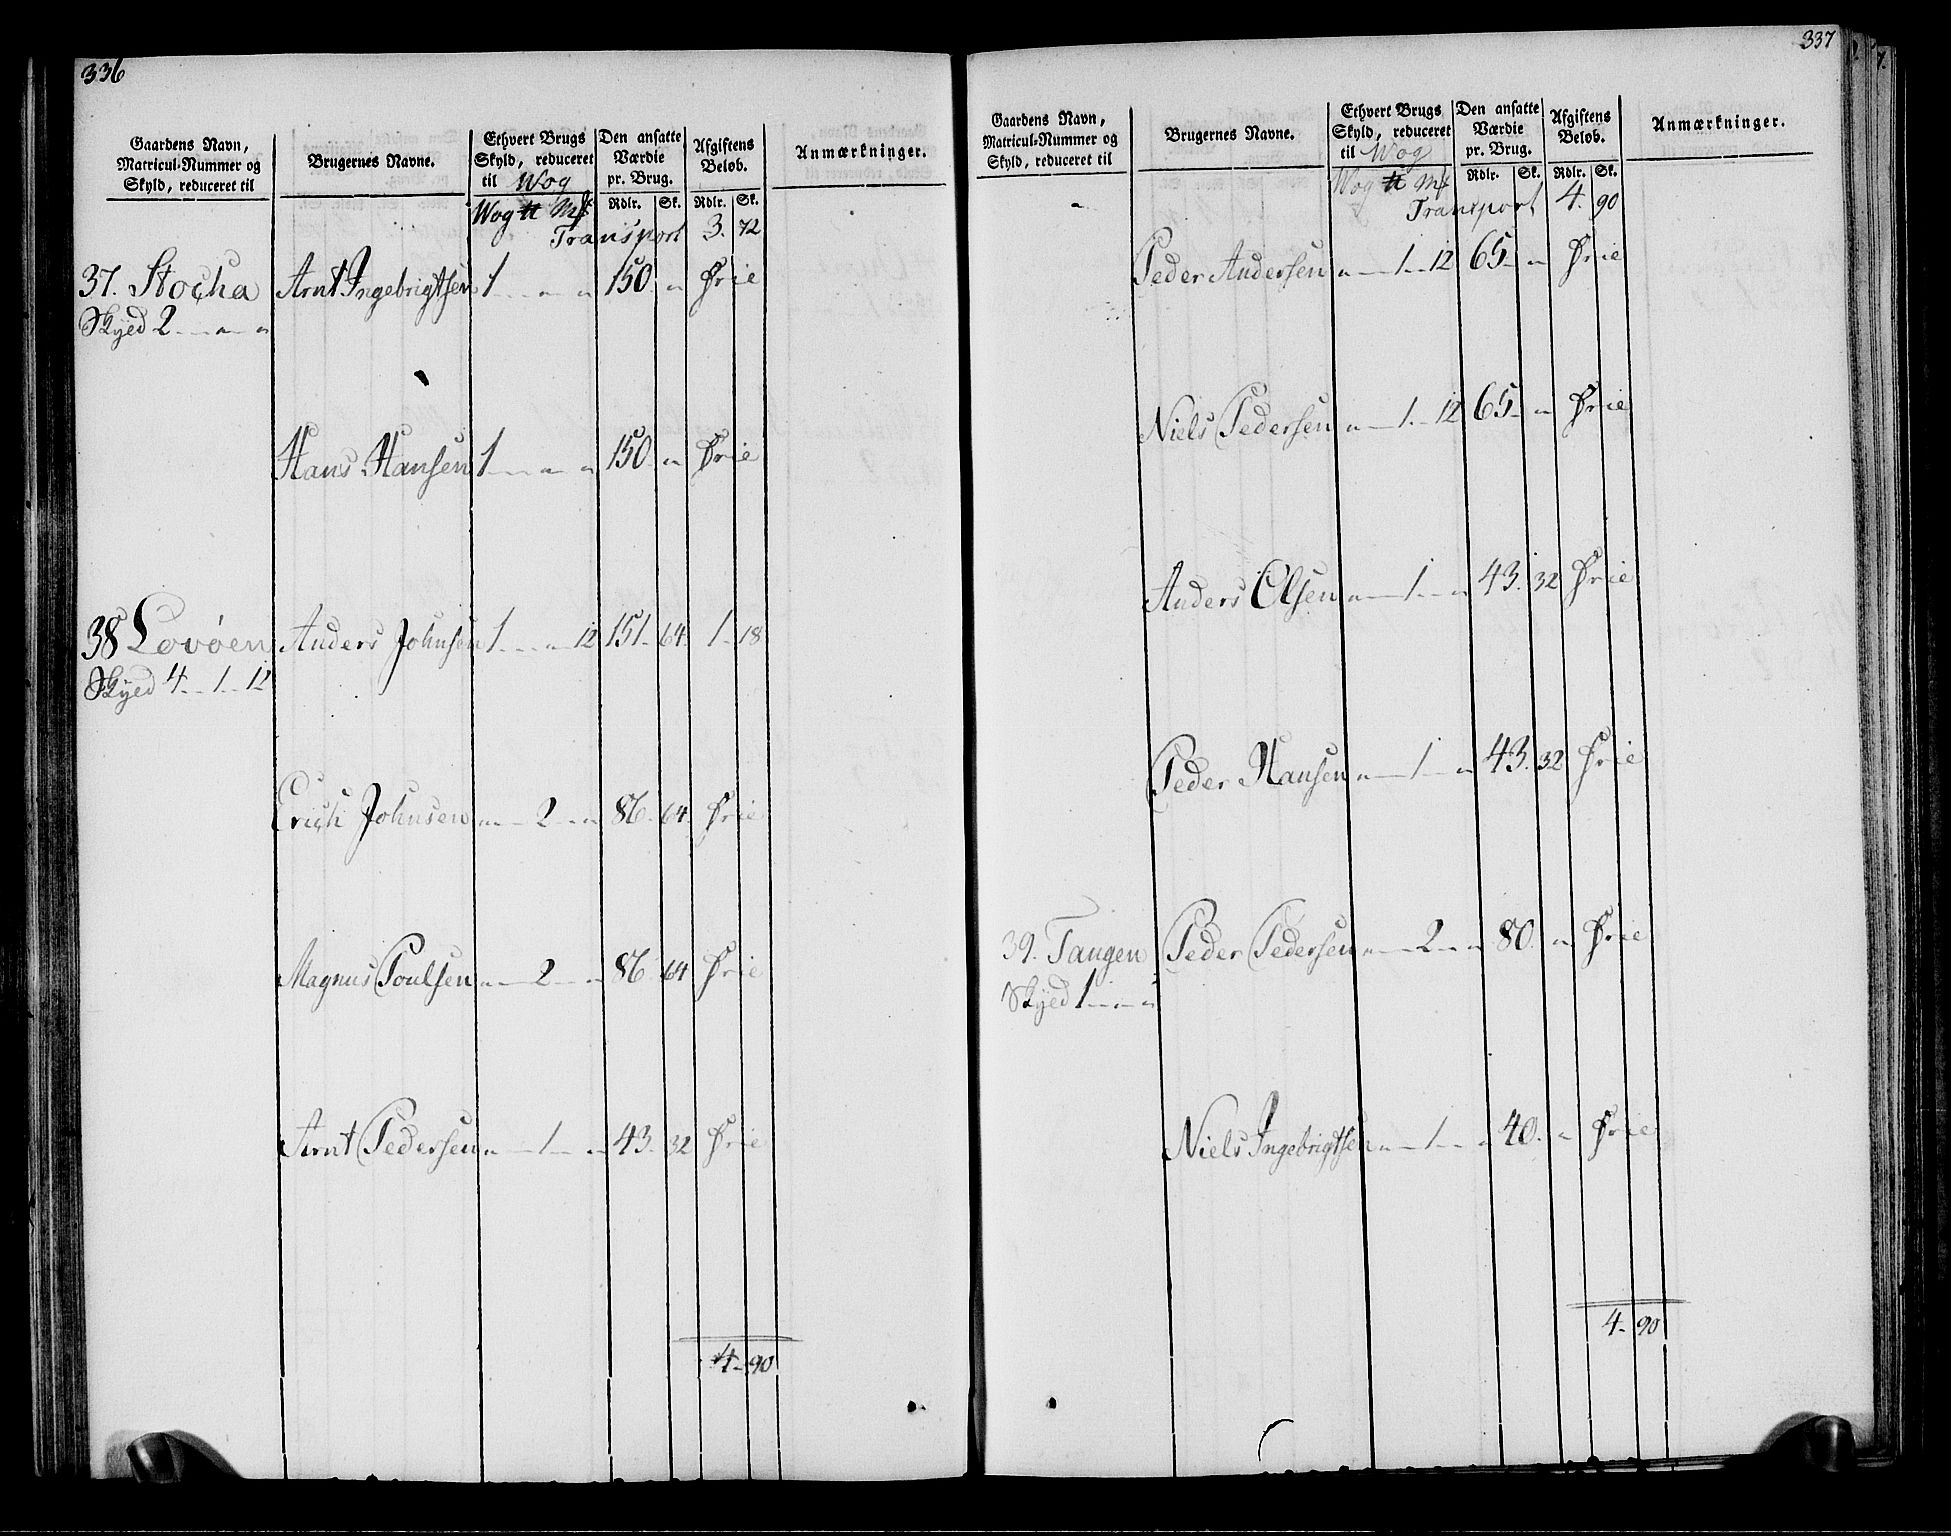 336
Gaardens Navn, Matricul-Nummer og Skyld, reduceret til
Brugernes Navne.
Ethvert Brugs Skyld, reduceret til Wog
Den ansatte Værdie pr. Brug.
Afgiftens Beløb.
Anmærkninger.
Wog ℔ Mk Rdlr. Sk. Rdlr. Sk.
Transport 3. 72
37. Stocha Arnt Ingebrigtsen 1 " " 150. " Frie
Skyed 2 " "
Hans Hansen 1 " " 150 " Frie
38 Lovøen Anders Johnsen 1 " 12 151 64 1 18
Skyed 4 1 12
Erich Johnsen " 2 " 86 64 Frie
Magnus Poulsen " 2 " 86 64 Frie
Arnt Pedersen " 1 " 43 32 Frie
4 90
337
Gaardens Navn, Matricul-Nummer og Skyld, reduceret til
Brugernes Navne.
Ethvert Brugs Skyld, reduceret til Wog
Den ansatte Værdie pr. Brug.
Afgiftens Beløb.
Anmærkninger.
Wog ℔ Mk Rdlr. Sk. Rdlr. Sk.
Transport 4. 90
Peder Andersen " 1 12 65 " Frie
Niels Pedersen " 1 12 65 " Frie
Anders Olsen " 1 " 43. 32 Frie
Peder Hansen " 1 " 43. 32 Frie
39. Tangen Peder Pedersen " 2 " 80. " Frie
Skyed 1 " "
Niels Ingebrigtsen " 1 " 40. " Frie
4 90